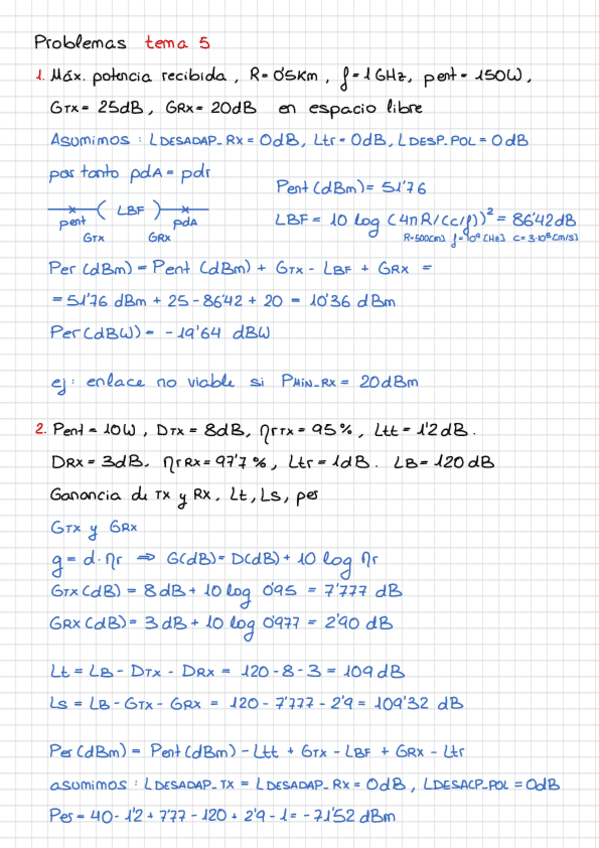 Problemas tema 5
1. Máx. potencia recibida, R=0'5Km, f=1GHz, pent=150W,
GTX=25dB, GRX=20dB en espacio libre
Asumimos: LDESADAP_RX=0dB, Ltr=0dB, LDESP.POL=0dB
por tanto pdA=pdr
Pent(dBm)=51'76
LBF
pent pdA
GTX GRX
LBF=10 log (4πR/(c/f))² = 86'42dB
R=500[m] f=10⁹[Hz] c=3·10⁸[m/s]
Per(dBm)=Pent(dBm)+GTX-LBF+GRX =
=51'76 dBm+25-86'42+20=10'36 dBm
Per(dBW)=-19'64 dBW
ej: enlace no viable si PMIN_RX=20dBm
2. Pent=10W, DTX=8dB, ηrTX=95%, Ltt=1'2dB.
DRX=3dB. ηrRX=97'7%, Ltr=1dB. LB=120dB
Ganancia de TX y RX. Lt, Ls, pes
GTX y GRX
g=d·ηr ⇒ G(dB)=D(dB)+10 log ηr
GTX(dB)=8dB+10 log 0'95=7'777 dB
GRX(dB)=3dB+10 log 0'977=2'90 dB
Lt=LB-DTX-DRX=120-8-3=109dB
Ls=LB-GTX-GRX=120-7'777-2'9=109'32 dB
Per(dBm)=Pent(dBm)-Ltt+GTX-LBF+GRX-Ltr
asumimos: LDESADAP_TX=LDESADAP_RX=0dB, LDESACP_POL=0dB
Pes=40-1'2+7'77-120+2'9-1=-71'52dBm